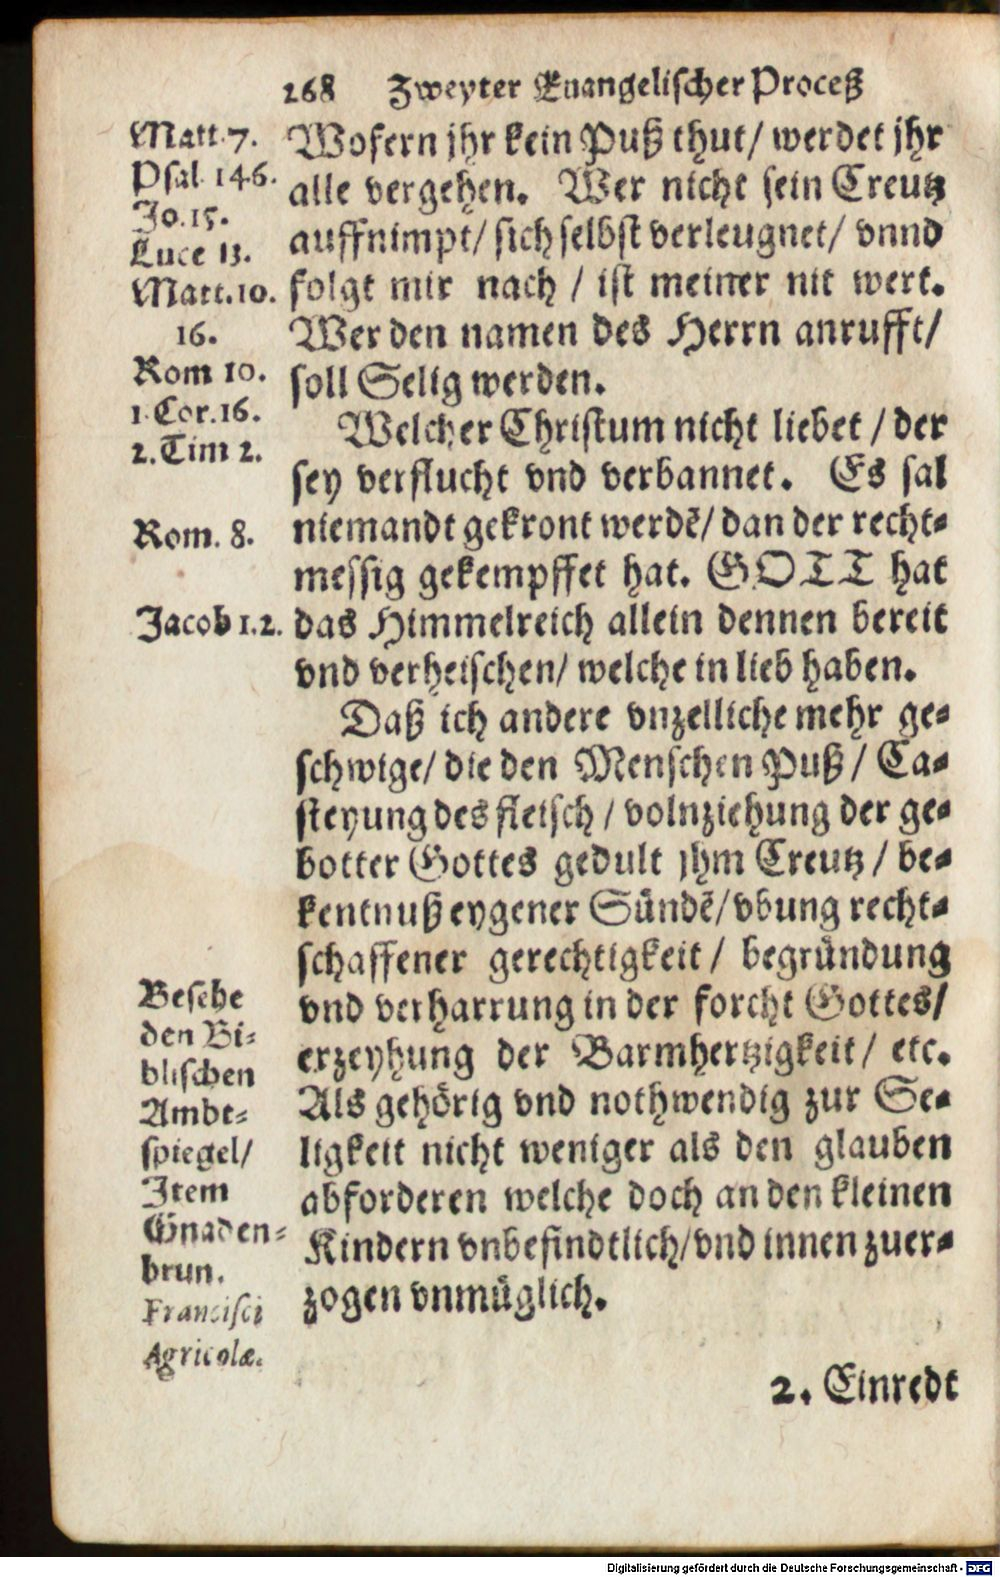 268 Zweyter Euangelischer Proceß
Matt. 7.
Psal. 146.
Jo. 15.
Luce 13.
Matt. 10.
16.
Rom 10.
1. Cor. 16.
2. Tim 2.
Rom. 8.
Jacob 1. 2.
Besehe
den Bi-
blischen
Ambt-
spiegel/
Item
Gnaden-
brun.
Francisci
Agricolæ.
Wofern jhr kein Puß thut/ werdet jhr
alle vergehen. Wer nicht sein Creutz
auffnimpt/ sich selbst verleugnet/ vnnd
folgt mir nach / ist meiner nit wert.
Wer den namen des Herrn anrufft/
soll Selig werden.
Welcher Christum nicht liebet / der
sey verflucht vnd verbannet. Es sal
niemandt gekront werdẽ/ dan der recht-
messig gekempffet hat. GOTT hat
das Himmelreich allein dennen bereit
vnd verheischen/ welche in lieb haben.
Daß ich andere vnzelliche mehr ge-
schwige/ die den Menschen Puß/ Ca-
steyung des fleisch / volnziehung der ge-
botter Gottes gedult jhm Creutz / be-
kentnuß eygener Sündẽ/ vbung recht-
schaffener gerechtigkeit / begründung
vnd verharrung in der forcht Gottes/
erzeyhung der Barmhertzigkeit/ etc.
Als gehörig vnd nothwendig zur Se-
ligkeit nicht weniger als den glauben
abforderen welche doch an den kleinen
Kindern vnbefindtlich/ vnd innen zuer-
zogen vnmüglich.
2. Einredt
Digitalisierung gefördert durch die Deutsche Forschungsgemeinschaft - DFG